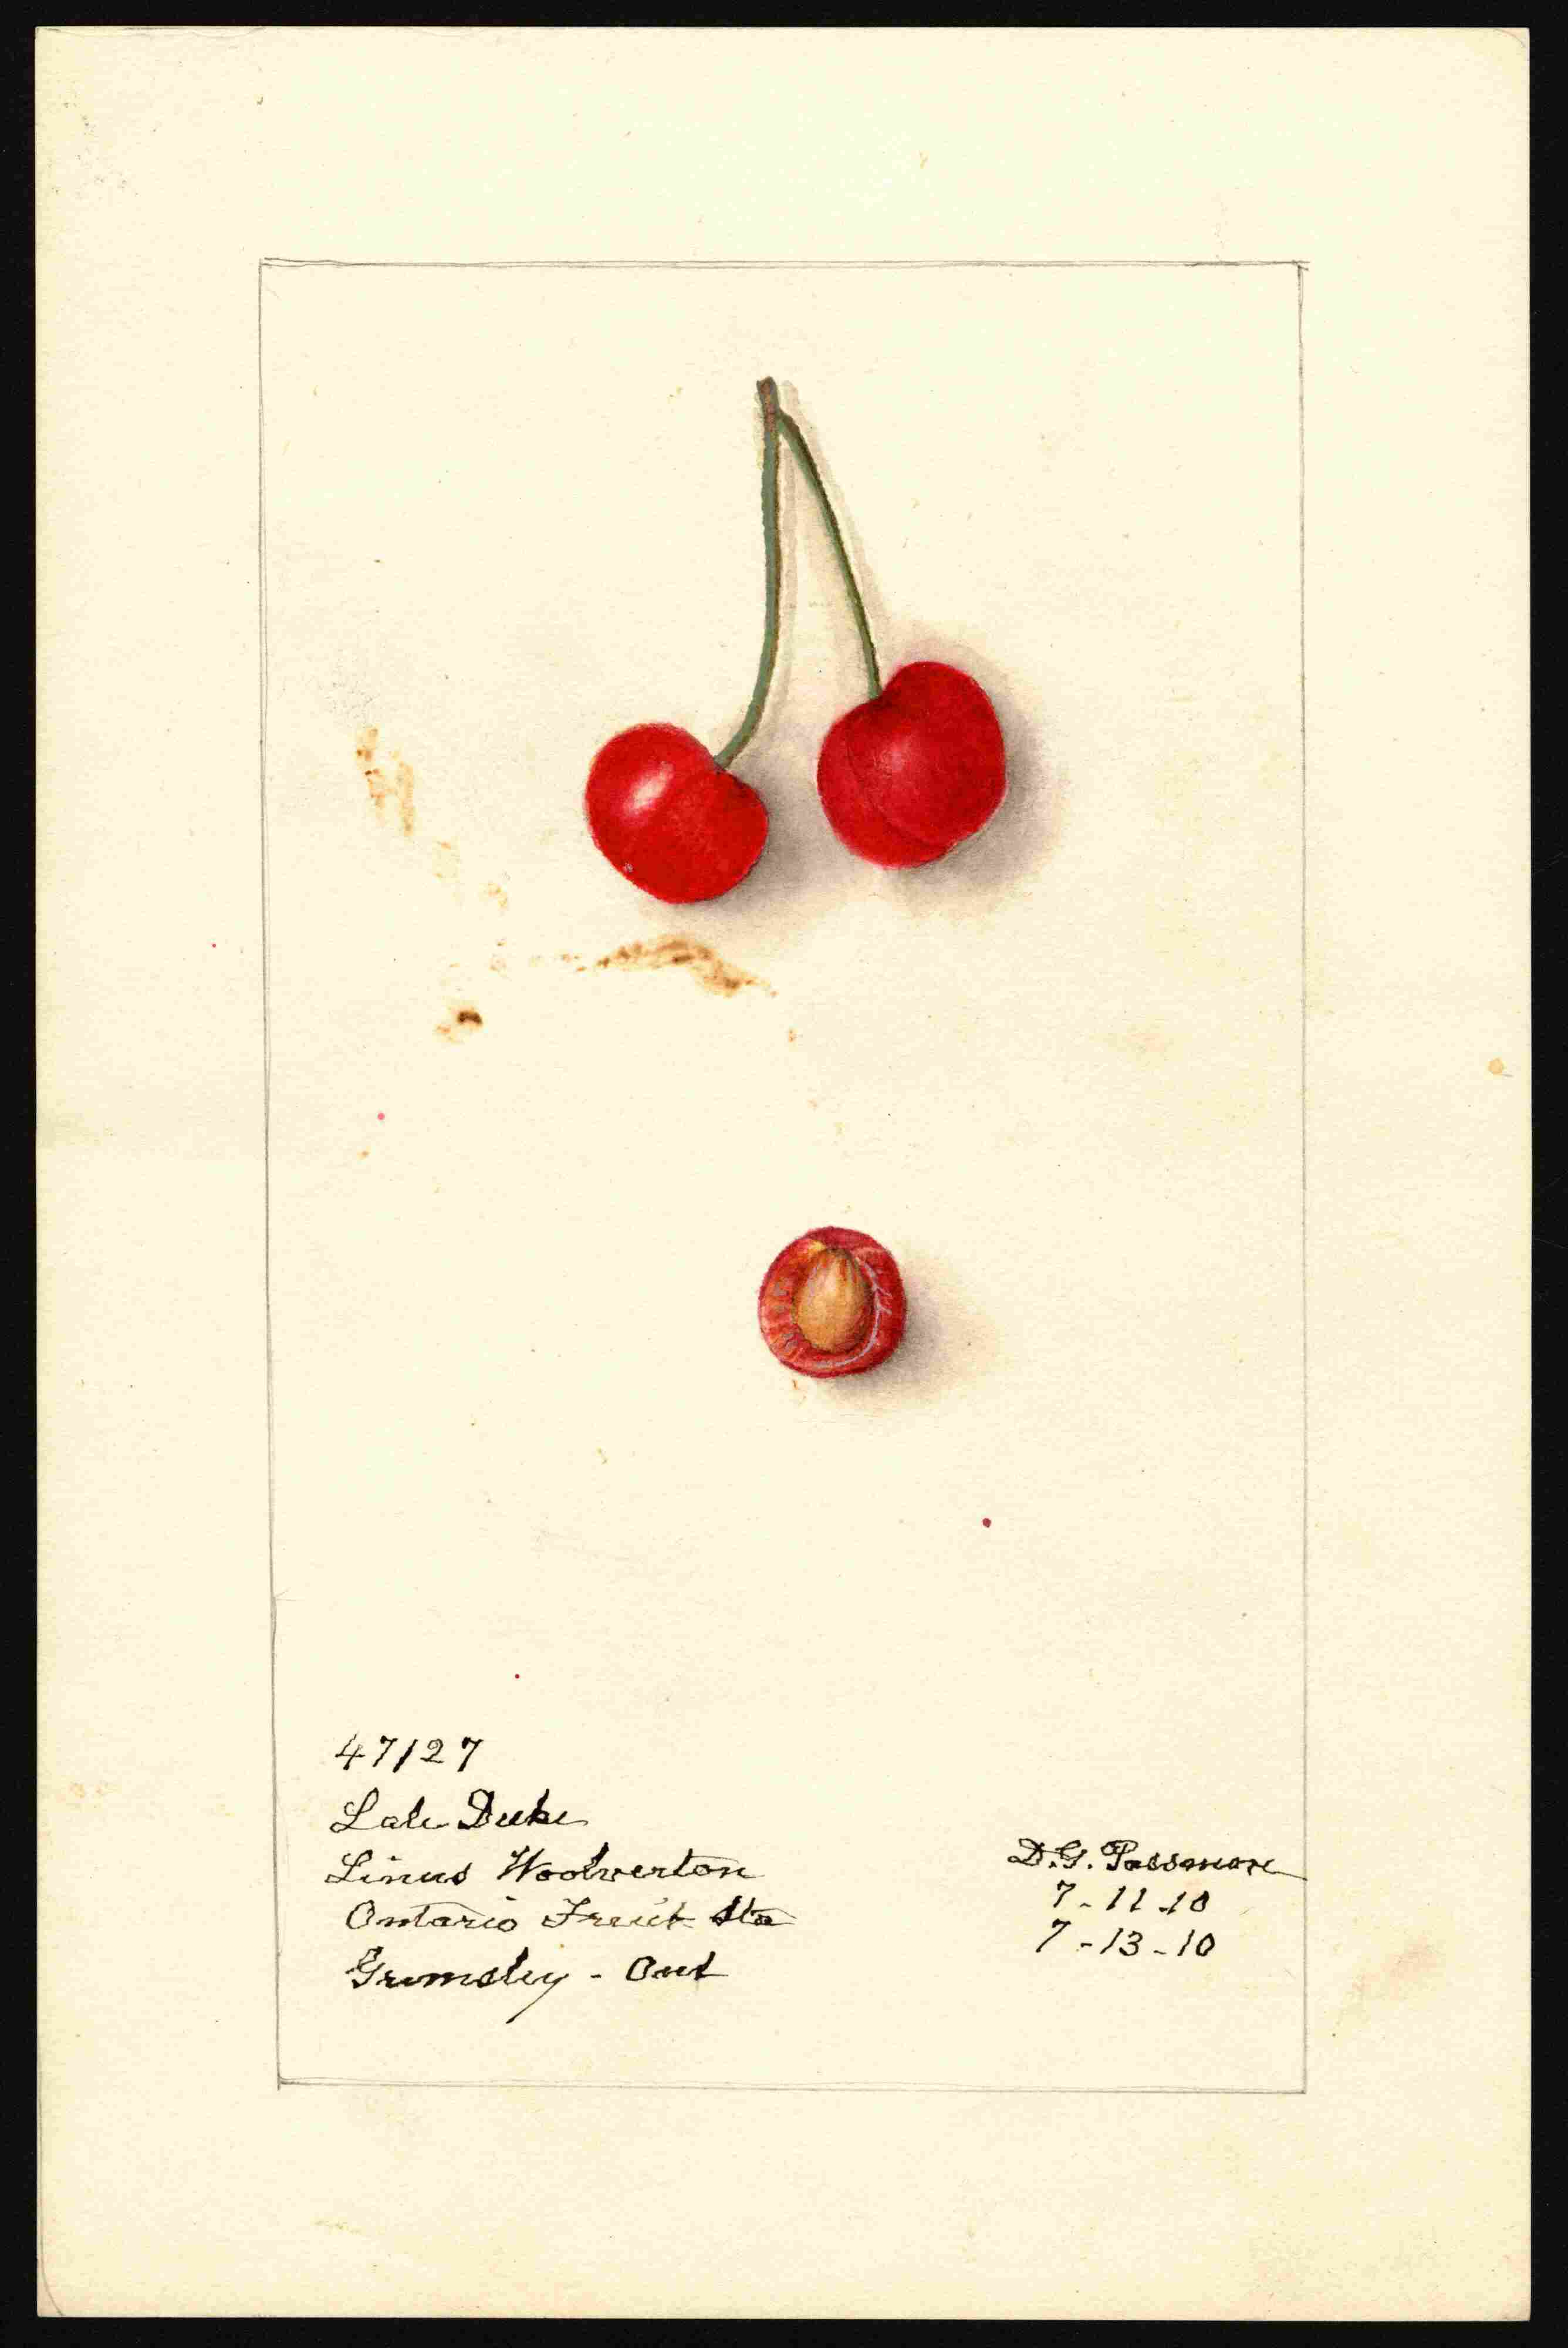 47127
Late Duke
Linus Woolverton
Ontario Fruit Sta
Grimsley - Ont
D.G. Passmore
7-11-10
7-13-10